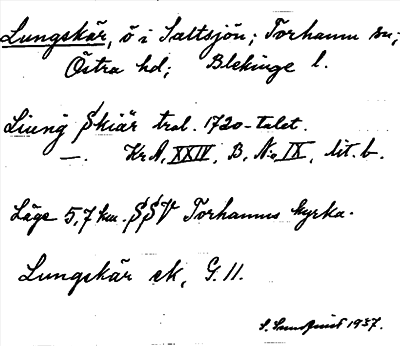 Lungskär, ö i Saltsjön; Torhamn sn;
Östra hd; Blekinge l.
Liung Skiär trol. 1720-talet.
—. Kr A, XXIV, B, No IX, lit. b.
Läge 5,7 km. SSV Torhamns kyrka.
Lungskär ek, G. 11.
S. Sundquist 1937.